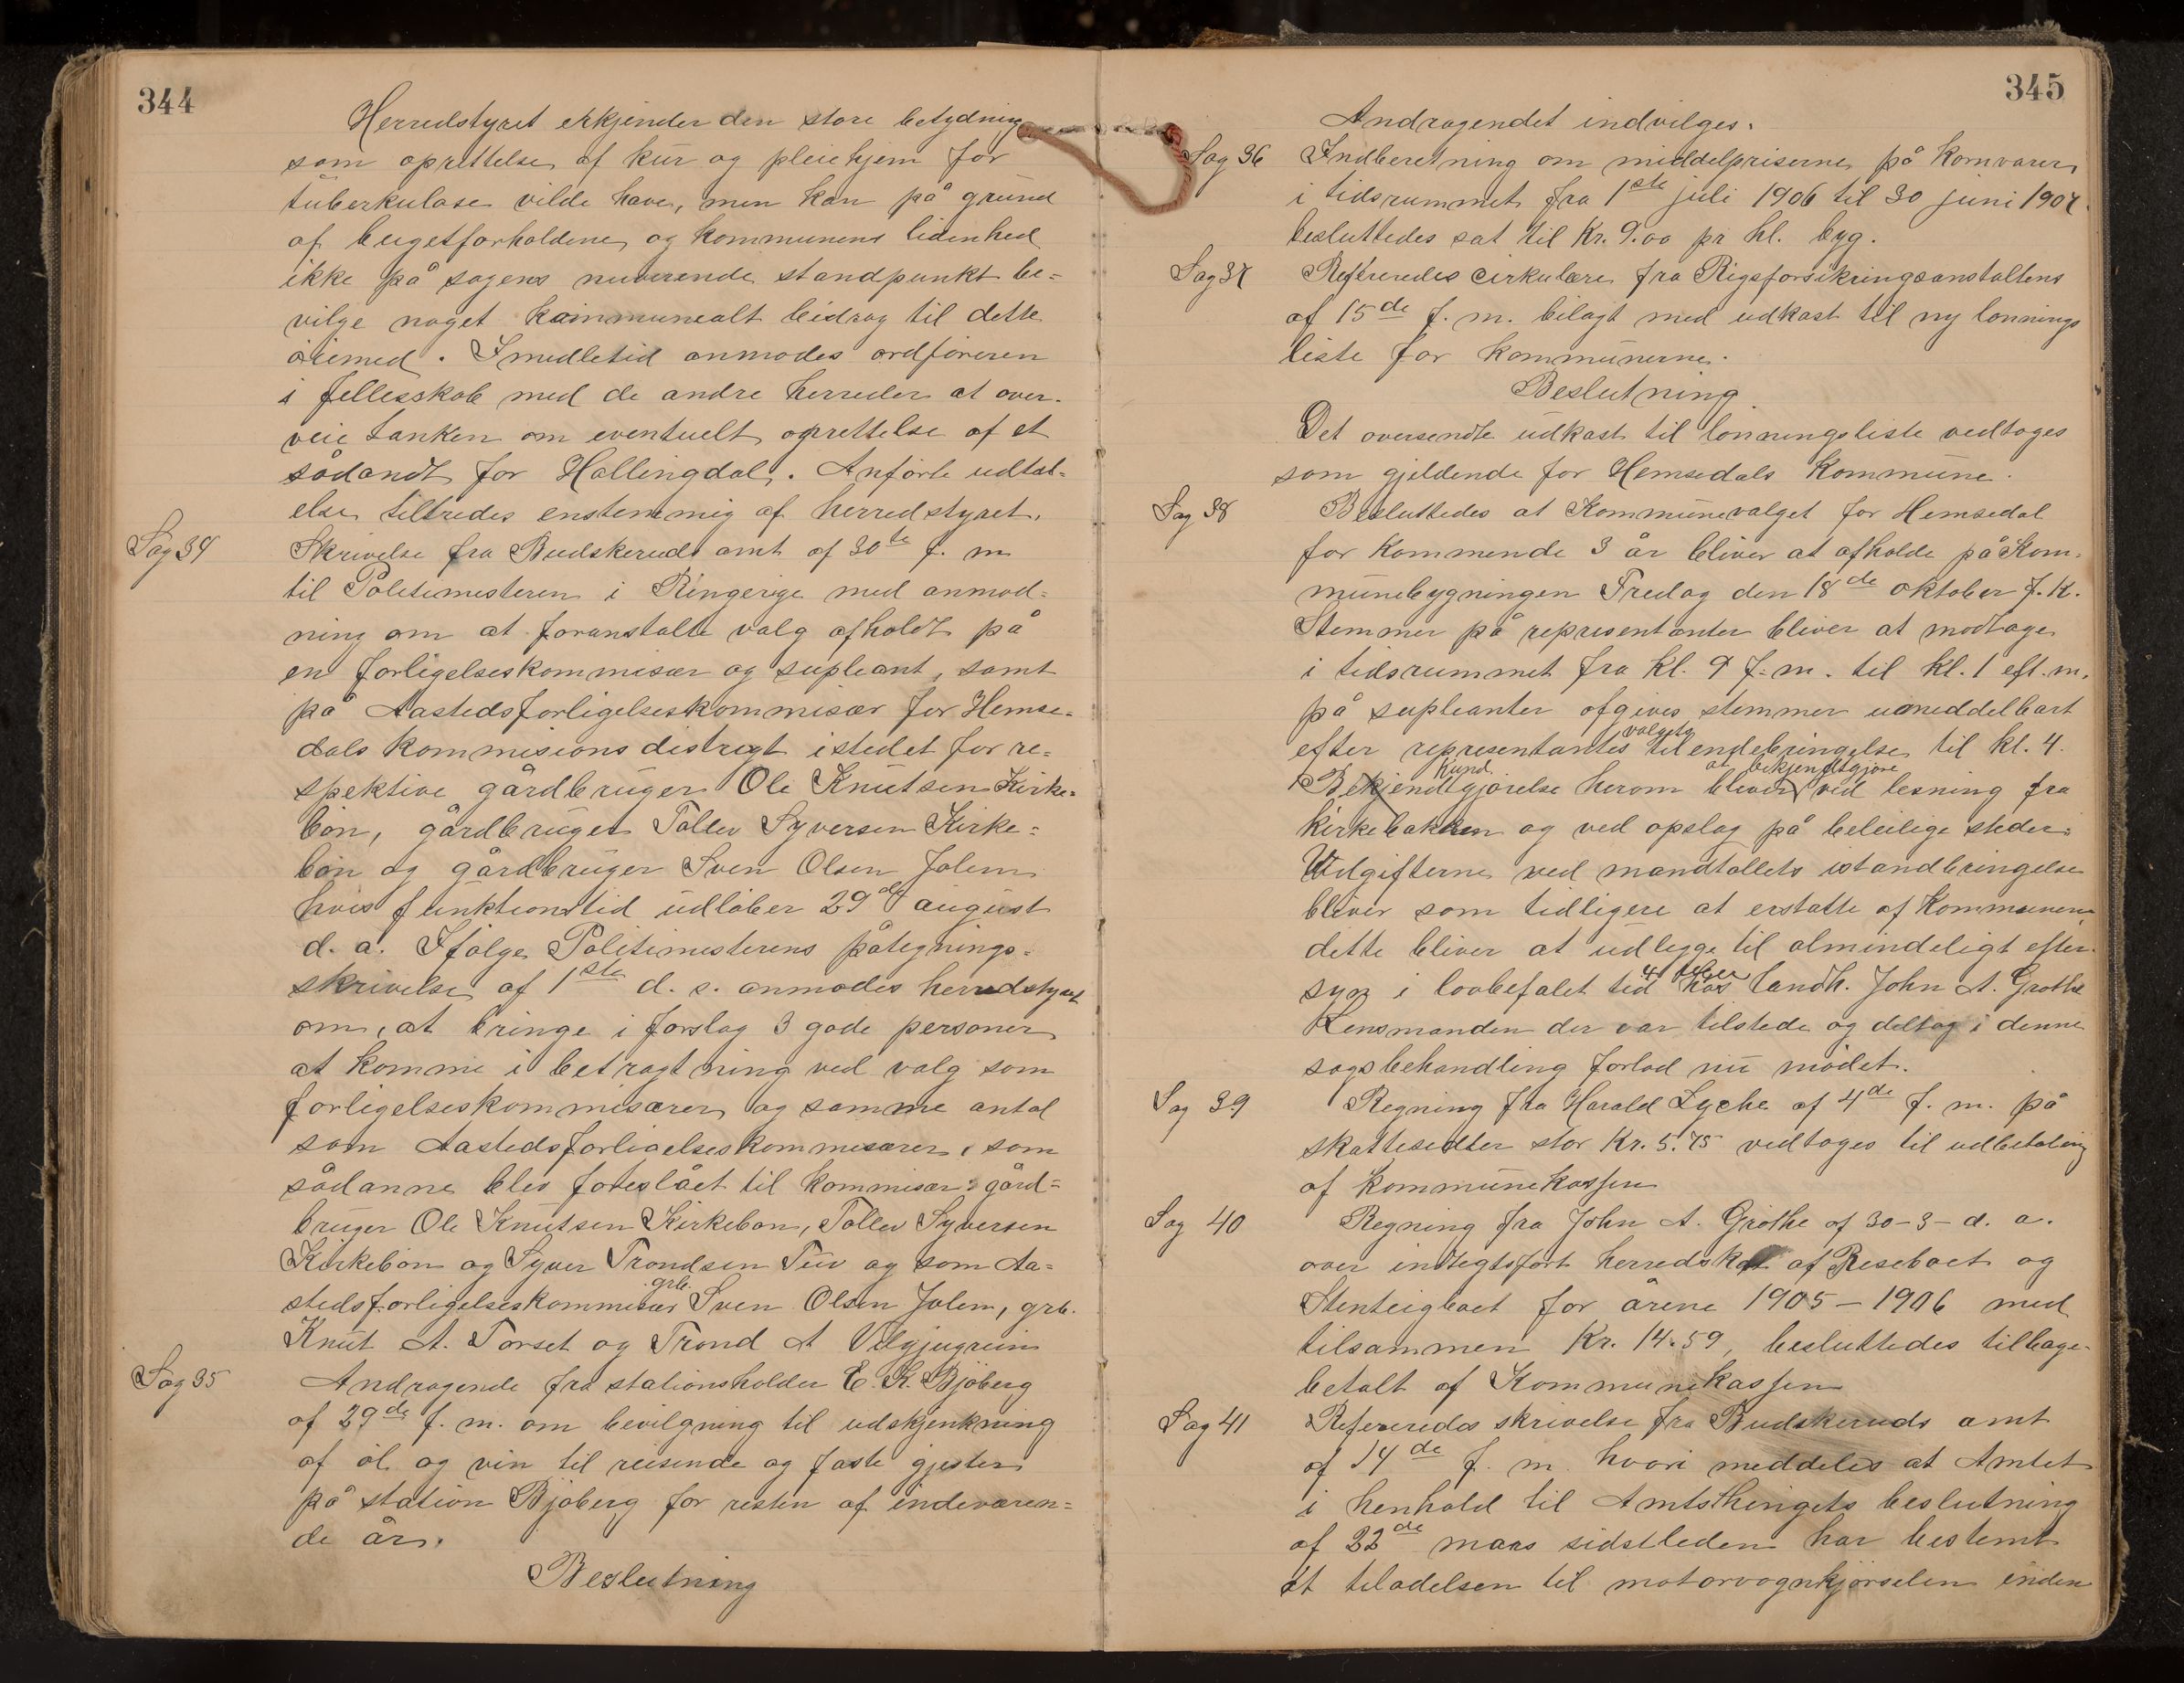 344
Herredstyret erkjender den store betydning
som oprettelse af kur og pleiehjem for
tuberkulose vilde have, men kan på grund
af bugetforholdene og kommunens lidenhed
ikke på sagens nuverende standpunkt be=
vilge noget kommunealt beidrag til dette
öiemed. Imidletid anmodes ordföreren
i fellesskab med de andre herreder at over-
veie tanken om eventuelt oprettelse af et
sådandt for Hallingdal. Anförte udtal=
else tiltredes enstemmig af herredstyret.
Sag 34 Skrivelse fra Budskeruds amt af 30te f. m
til Politimesteren i Ringerige med anmod=
ning om at foranstalte valg afholdt på
en forligelseskommisær og supleant, samt
på Aastedsforligelseskommisær for Hemse=
dals kommisions distrigt istedet for re=
spektive gårdbruger Ole Knutsen Kirke=
bön, gårdbruger Tollev Syversen Kirke=
bön og gårdbruger Sven Olsen Jolem
hvis funktionstid udlöber 29de august
d. a. Ifölge Politimesterens påtegnings=
skrivelse af 1ste d. s. anmodes herredstyret
om, at bringe i forslag 3 gode personer
at komme i betragtning ved valg som
forligelseskommisærer og samme antal
som Aastedsforligelseskommisærer, som
sådanne blev foreslået til kommisær: gård=
bruger Ole Knutsen Kirkebön, Tollev Syversen
Kirkebön og Syver Trondsen Tuv og som Aa=
stedsforligelseskommisær grb. Sven Olsen Jolem, grb.
Knut A. Torset og Trond A Ulgjugrein
Sag 35 Andragende fra stationsholder E. K. Bjöberg
af 29de f. m. om bevilgning til udskjenkning
af öl og vin til reisende og faste gjester
på station Bjöberg for resten af indeværen=
de år.
Beslutning
345
Andragendet indvilges.
Sag 36 Indberetning om middelpriserne på kornvarer
i tidsrummet fra 1ste juli 1906 til 30 juni 1907.
besluttedes sat til Kr. 9.00 pr hl. byg.
Sag 37 Refereredes cirkulære fra Rigsforsikringsanstaltens
af 15de f. m. bilagt med udkast til ny lönnings
liste for kommunerne.
Beslutning
Det oversendte udkast til lönningsliste vedtages
som gjeldende for Hemsedals Kommune.
Sag 38 Besluttedes at Kommunevalget for Hemsedal
for kommende 3 år bliver at afholde på Kom=
munebygningen Fredag den 18de oktober f. k.
Stemmer på representanter bliver at modtage
i tidsrummet fra kl. 9 f.m. til kl. 1 eft.m.
på supleanter afgives stemmer umiddelbart
efter representantes valgets tilendebringelse til kl. 4.
Kund at bekjendtgjöre
Bekjendtgjörelse herom bliver ved lesning fra
kirkebakken og ved opslag på beleilige steder.
Udgifterne ved mandtallets istandbringelse
bliver som tidligere at erstatte af Kommunen
dette bliver at udlegge til almindeligt efter-
syn i lovbefalet tid hos landh. John A. Grothe
Lensmanden der var tilstede og deltog i denne
sagsbehandling forlod nu mödet.
Sag 39 Regning fra Harald Lyche af 4de f. m. på
skattesedler stor Kr. 5.75 vedtages til udbetaling
af kommunekassen
Sag 40 Regning fra John A. Grothe af 30-3- d. a.
over indtegtsfört herredskat af Reseboet og
Stenteigboet for årene 1905 – 1906 med
tilsammen Kr. 14.59, besluttedes tilbage-
betalt af Kommunekassen
Sag 41 Refereredes skrivelse fra Budskeruds amt
af 14de f. m. hvori meddeles at Amtet
i henhold til Amtsthingets beslutning
af 22de mars sidstleden har bestemt
at tiladelsen til motorvognkjörselen inden